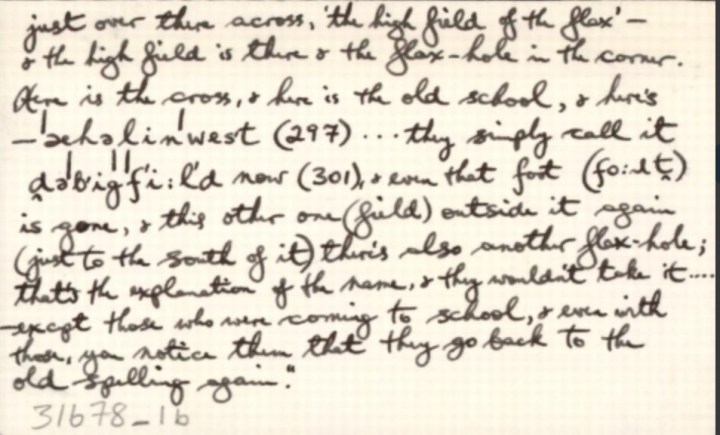 just over there across, 'the high field of the flax' –
& the high field is there & the flax-hole in the corner.
Here is the cross, & here is the old school, & here's
– ˈæehəlinˈwest (297) ... they simply call it
ˈd̪əˈbˈigˈfˈi:l'd now (301), & even that fort (fo:ɹt̪)
is gone, & this other one (field) outside it again
(just to the south of it) there's also another flax-hole;
that's the explanation of the name, & they wouldn't take it ....
– except those who were coming to school, & even with
those, you notice them that they go back to the
old spelling again."
31678_1b